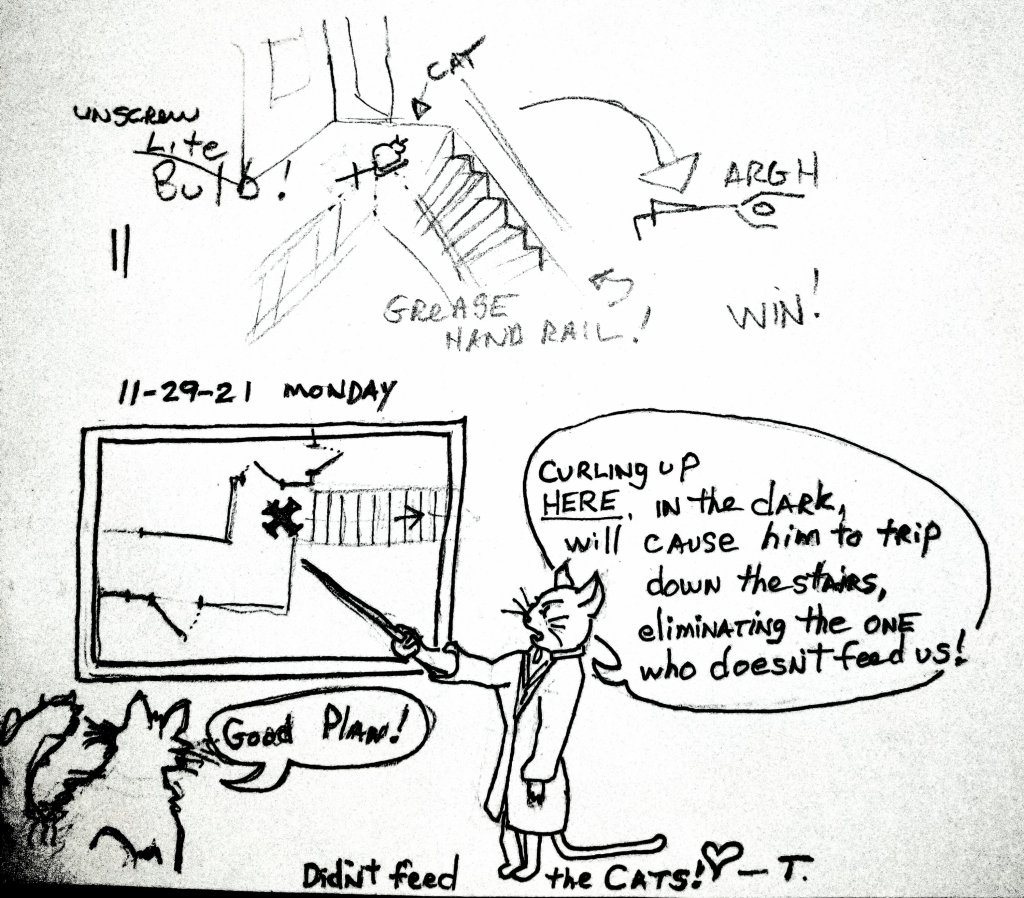 CAT
UNSCREW
Lite
Bulb!
ARGH
GREASE
HAND RAIL!
WIN!
11-29-21 MONDAY
CURLING UP
HERE, IN the dARK,
will CAUSE him to tRip
down the stAIRs,
eliminATING the ONE
who doesN't feed us!
Good PlaN!
DidN't feed the CATS! ♡ — T.